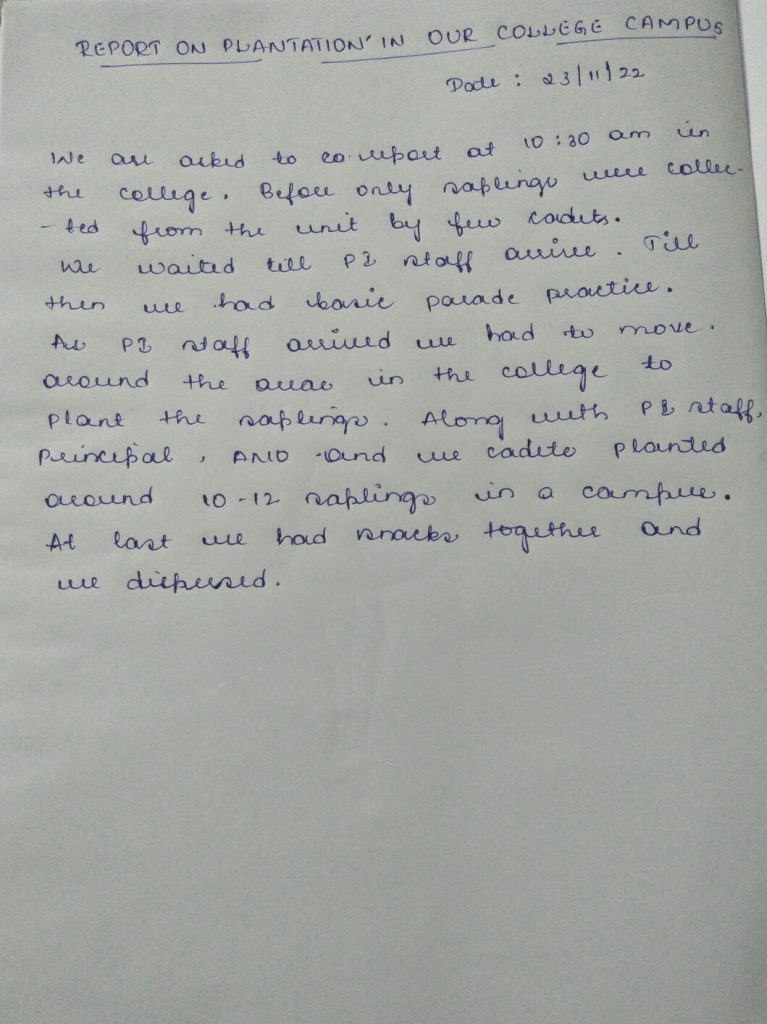 REPORT ON PLANTATION' IN OUR COLLEGE CAMPUS
Date : 23/11/22
We are asked to report at 10:30 am in
the college. Before only saplings were collec-
-ted from the unit by few cadets.
We waited till PI staff arrive. Till
then we had basic parade practice.
As PI staff arrived we had to move.
around the areae in the college to
plant the saplings. Along with PI staff,
Principal, ANO and we cadets planted
around 10-12 saplings in a campus.
At last we had snacks together and
we dispersed.